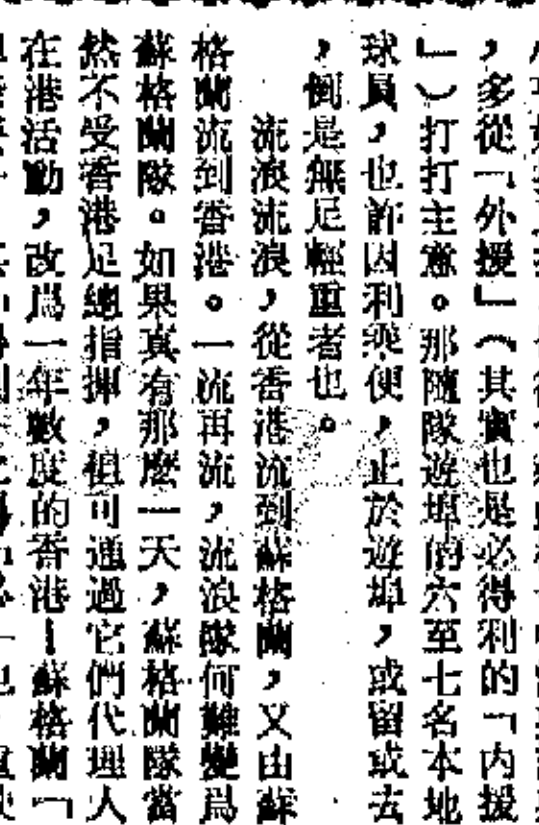 ，多從「外援」（其實也是必得利的「內援
」）打打主意。那隨隊遊埠的六至七名本地
球員，也許因利乘便，止於遊埠，或留或去
，倒是無足輕重者也。
流浪流浪，從香港流到蘇格蘭，又由蘇
格蘭流到香港。一流再流，流浪隊何難變爲
蘇格蘭隊。如果真有那麼一天，蘇格蘭隊當
然不受香港足總指揮，但可通過它們代理人
在港活動，改爲一年數度的香港—蘇格蘭「